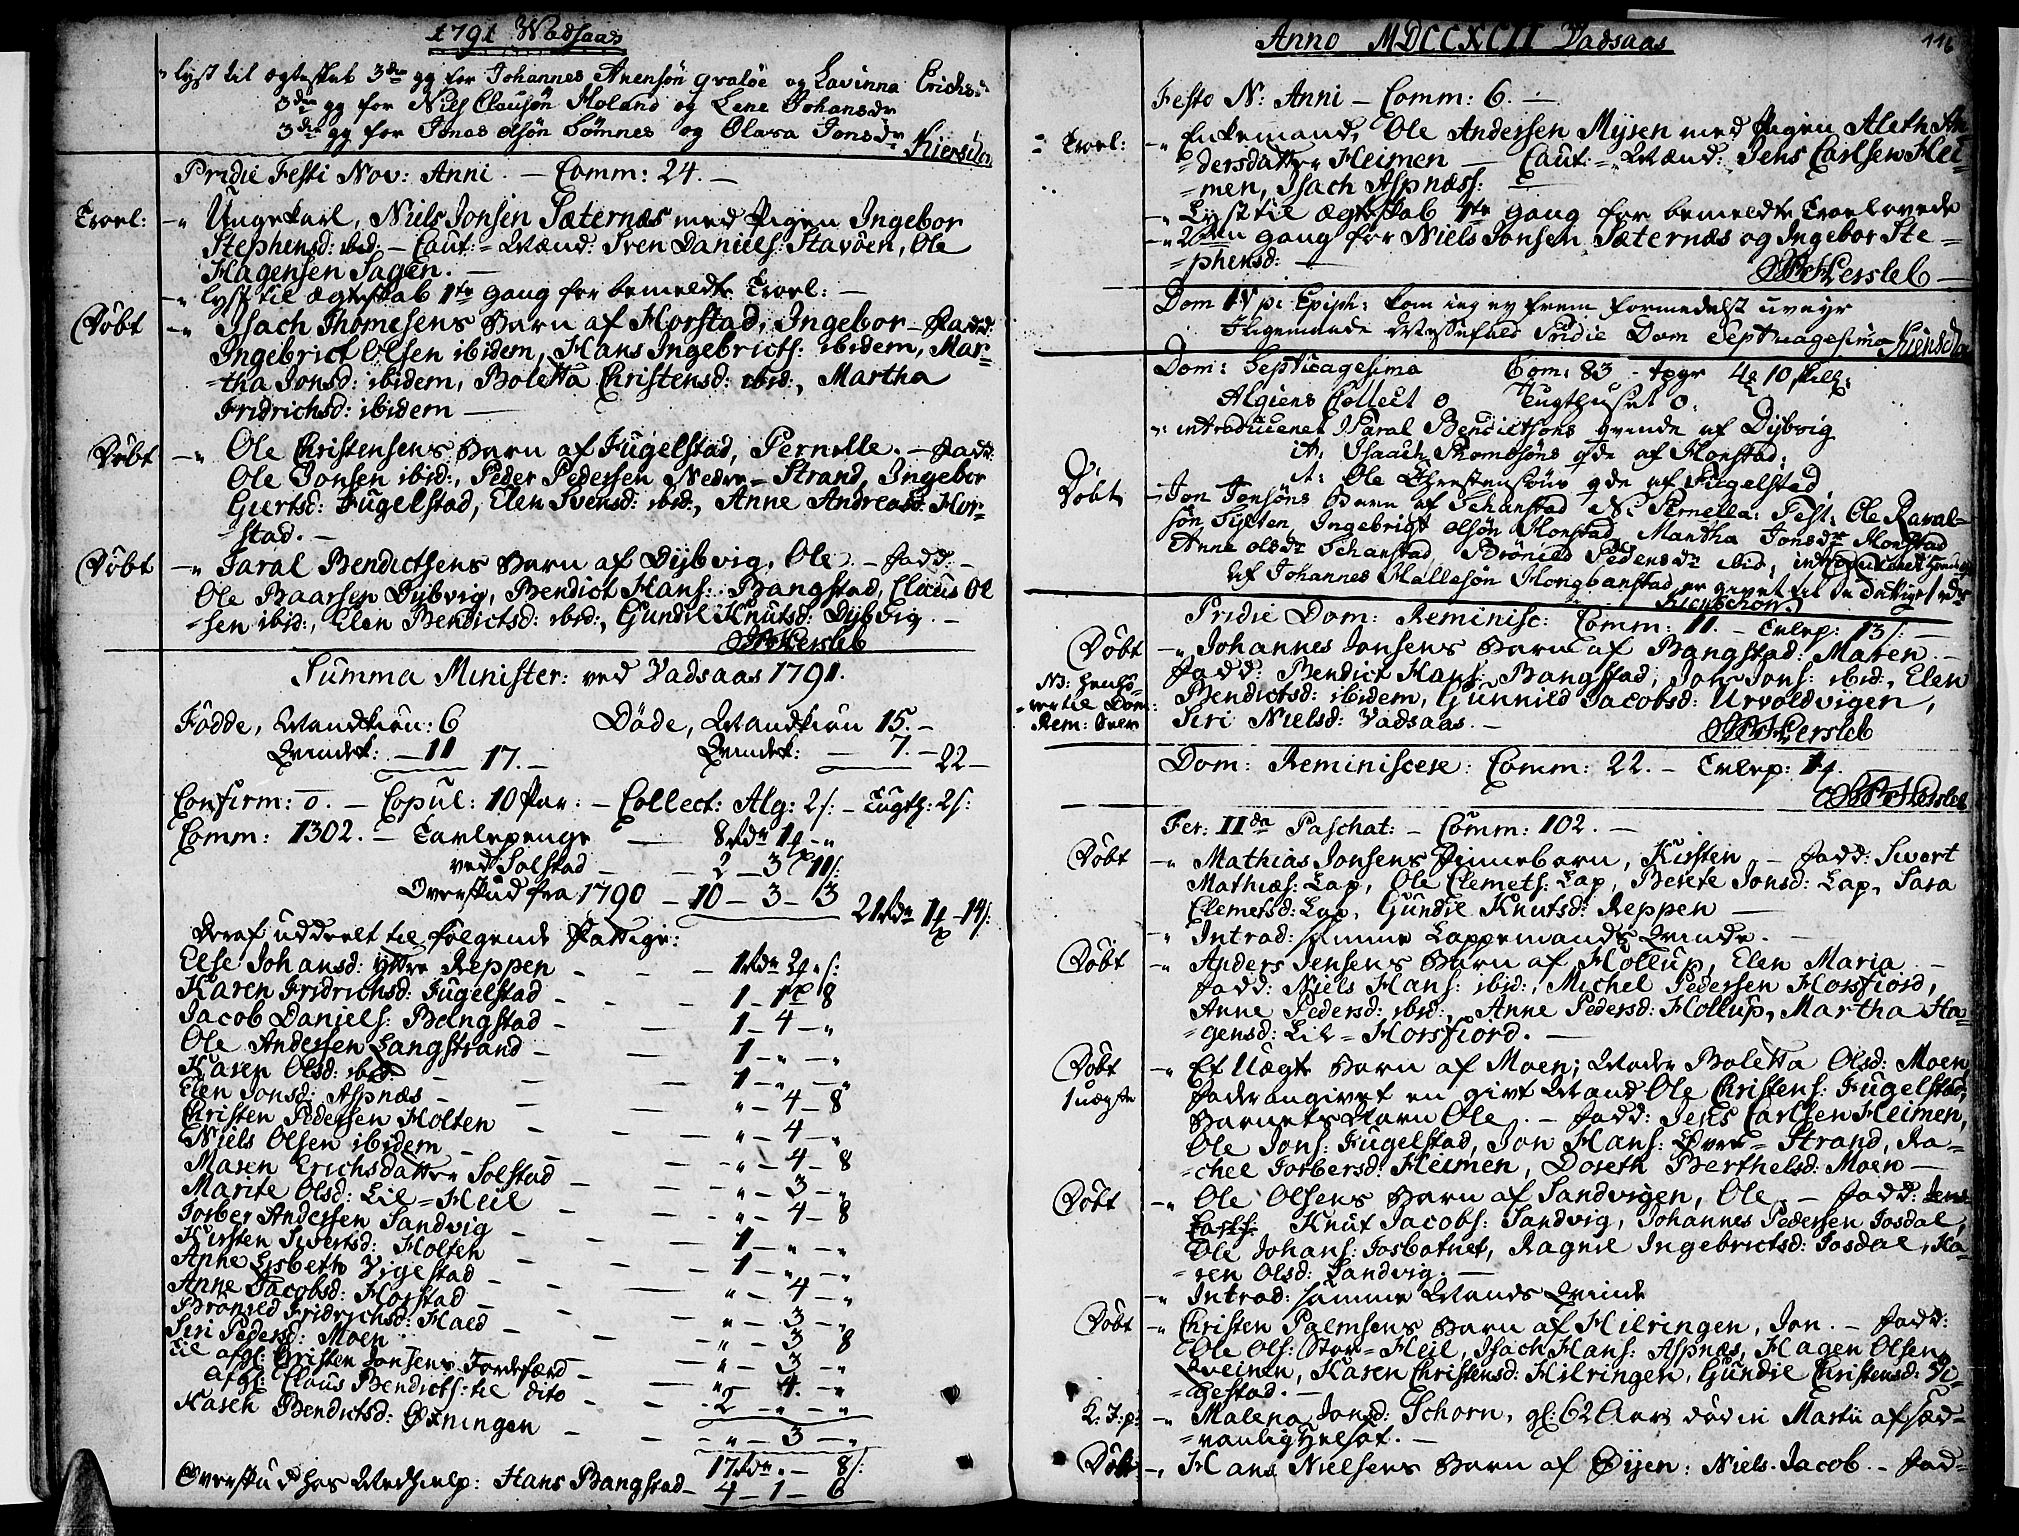 1791 Wadsaas
" lyst til ægteskab 3die gg for Johannes Arensøn Graløe og Lavinna Erichsd:
3die gg for Niels Clausøn Holand og Lene Johansdr
3die gg for Jonas Olsøn Sømnes og Olava Jonsdr
Pridie Festi Nov: Anni. – Comm: 24. –
Troel: –" Ungekarl, Niels Jonsen Sæternæs med Pigen Ingebor
Stephensd: ibd: – Caut: = Mænd: Sven Daniels: Stavöen, Ole
Hagensen Sagen. –
–" lyst til Ægteskab 1te gang for bemeldte Troel: –
Døbt –" Isach Thomesens Barn af Horstad, Ingebor – Fadd:
Ingebrict Olsen ibidem, Hans Ingebricts: ibidem, Mar-
=tha Jonsd: ibidem, Boletta Christensd: ibid:, Martha
Fridrichsd: ibidem –
Døbt –" Ole Christensens Barn af Fugelstad, Pernelle. – Fadd:
Ole Jonsen ibid:, Peder Pedersen Nedre-Strand, Ingebor
Giertsd: Fugelstad, Elen Svensd: ibd:, Anne Andreasd: Hor-
=stad. –
Døbt –" Faral Bendictsens Barn af Dybvig, Ole – Fadd: –
Ole Baarsen Dybvig, Bendict Hans: Bangstad, Claus Ol
=sen ibid:, Elen Bendictsd: ibd:, Gundil Knutsd: Dybvig. –
Hersleb
Summa Minister: ved Vadsaas 1791.
Födde, Mandkiön: 6 Döde, Mandkiön 15. –
Qvindek: – 11 17. – Qvindek: – 7. – 22 –
Confirm: 0. – Copul: 10 Par: – Collect: Alg: 2 s: – Tugth: 2 s:
Comm: 1302. – Tavlepenge – 8 rdr 1 – "
ved Solstad – 2 – 3 11 s:
Overskud fra 1790 – 10 – 3 – 3 21 rdr 1 – 14 s:
Deraf uddeelt til følgende Fattige:
Else Johansd: yttre Reppen – 1 rdr 2 " s:
Karen Fridrichsd: Fugelstad – 1 – 1 8
Jacob Daniels: Bangstad – 1 – 4 – "
Ole Andersen Langstrand – 1 – " – "
Karen Olsd: ibd: – 1 – " – "
Elen Jonsd: Aspnæs – " – 4 – 8
Christen Pedersen Holten – " – 4 – "
Niels Olsen ibidem – " – 4 – 8
Maren Erichsdatter Solstad – " – 3 – "
Marite Olsd: Lil=Heil – " – 4 – 8
Torber Andersen Sandvig – 1 – " – "
Kirsten Sivertsd: Holten – 1 – " – "
Anne Lisbeth Vigestad – " – 4 – "
Anne Jacobsd: Horstad – " – 3 – "
Brönild Fridrichsd: Hald – " – 3 8
Siri Pedersd: Moen – " – 3 – "
til afgl: Christen Jonsens Jordefærd – " – 4 – "
afgl: Claus Bendicts: til dito – 2 – " – "
Karen Bendictsd: Øxningen – " – 3 – "
17 rdr " – 8 s:
Overskud hos Medhielp: Hans Bangstad – 4 – 1 – 6
Anno MDCCXCII Vadsaas 116
Festo N: Anni – Comm: 6. –
Troel: –" Enkemand, Ole Andersen Mysen med Pigen Aleth An
=dersdatter Heimen – Caut: = Mænd: Jens Carlsen Hei
=men, Isach Aspnæs: –
–" Lyst til Ægteskab 1te gang for bemeldte Troelovede
–" 2den gang for Niels Jonsen Sæternæs og Ingebor Ste-
=phensd: –
Hersleb –
Dom IV p: Epiph: kom ieg ey frem formedelst uveyr
Ligemaade Messefald Pridie Dom Septuagesima
Dom: Septuagesima Com: 83 – 10 skill:
Algiens Collect 0 Tugthuset 0.
" introduceret Paral Bendictsøns qvinde af Dybvig
it: Isaach Thomesøns qde af Horstad;
it: Ole Christensøns qde af Fugelstad
Døbt – Jon Jonsøns Barn af Schanstad N: Pernella: Test: Ole Raval-
søn, Ingebrigt Olsøn Horstad, Martha Jonsdr Horstad
Anne Olsdr Schanstad, Brönild Pedersdr ibid,
af Johannes Hallesøn Hongbanstad er givet til de Fattige 1 rdr
Pridie Dom: Reminisc: Comm: 11. – Tvlvp: 13 s: –
Døbt –" Johannes Jonsens Barn af Bangstad: Maren. –
Fadd: Bendict Hans: Bangstad, Jon Jons: ibid:, Elen
Bendictsd: ibidem, Gunnild Jacobsd: Urvoldvigen,
Siri Nielsd: Vadsaas. –
Hersleb
Dom: Reminiscere: Comm: 22. – Tvlvp: 1
Hersleb
Fer: II da Paschat: – Comm: 102. –
Døbt –" Mathias Jonsens Finnebarn, Kirsten – Fadd: Sivert
Mathias: Lap, Ole Clemets: Lap, Berete Jonsd: Lap, Sara
Clemetsd: Lap, Gundil Knutsd: Reppen –
–" Introd: samme Lappemands Qvinde. –
Døbt –" Anders Jensens Barn af Hollup, Elen Maria –
Fadd: Niels Hans: ibid:, Michel Pedersen Horsfiord,
Anne Pedersd: ibid:, Anne Pedersd: Hollup, Martha Ha-
gensd: Lil=Horsfiord. –
Døbt –" Et Uægte Barn af Moen; Moder Boletta Olsd: Moen,
1 uægte Fader angivet en givt Mand Ole Christens: Fugelstad,
Barnets Navn Ole. – Fadd: Jens Carlsen Heimen,
Ole Jons: Fugelstad, Jon Hans: Øvre=Strand, Ra-
=chel Torbersd: Heimen, Doreth Berthelsd: Moen –
Døbt –" Ole Olsens Barn af Sandvigen, Ole. – Fadd: Jens
Carls: Knut Jacobs: Sandvig, Johannes Pedersen Josdal,
Ole Johans: Josbotnet, Ragnil Ingebrictsd: Josdal, Ka-
=ren Olsd: Sandvig. –
–" Introd: samme Mands Qvinde
Døbt –" Christen Palmsens Barn af Hilringen, Jon. – Fadd:
Ole Ols: Stor=Heil, Isach Hans: Aspnæs, Hagen Olsen
Qveinen, Karen Christensd: Hilringen, Gundil Christensd: Vi-
=gestad. –
K: J: p: –" Malena Jonsd: Schorn, gl: 62 Aar, död in Martii af sæd-
=vanlig Helsot. –
Døbt –" Hans Nielsens Barn af Øijen: Niels Jacob – Fad-